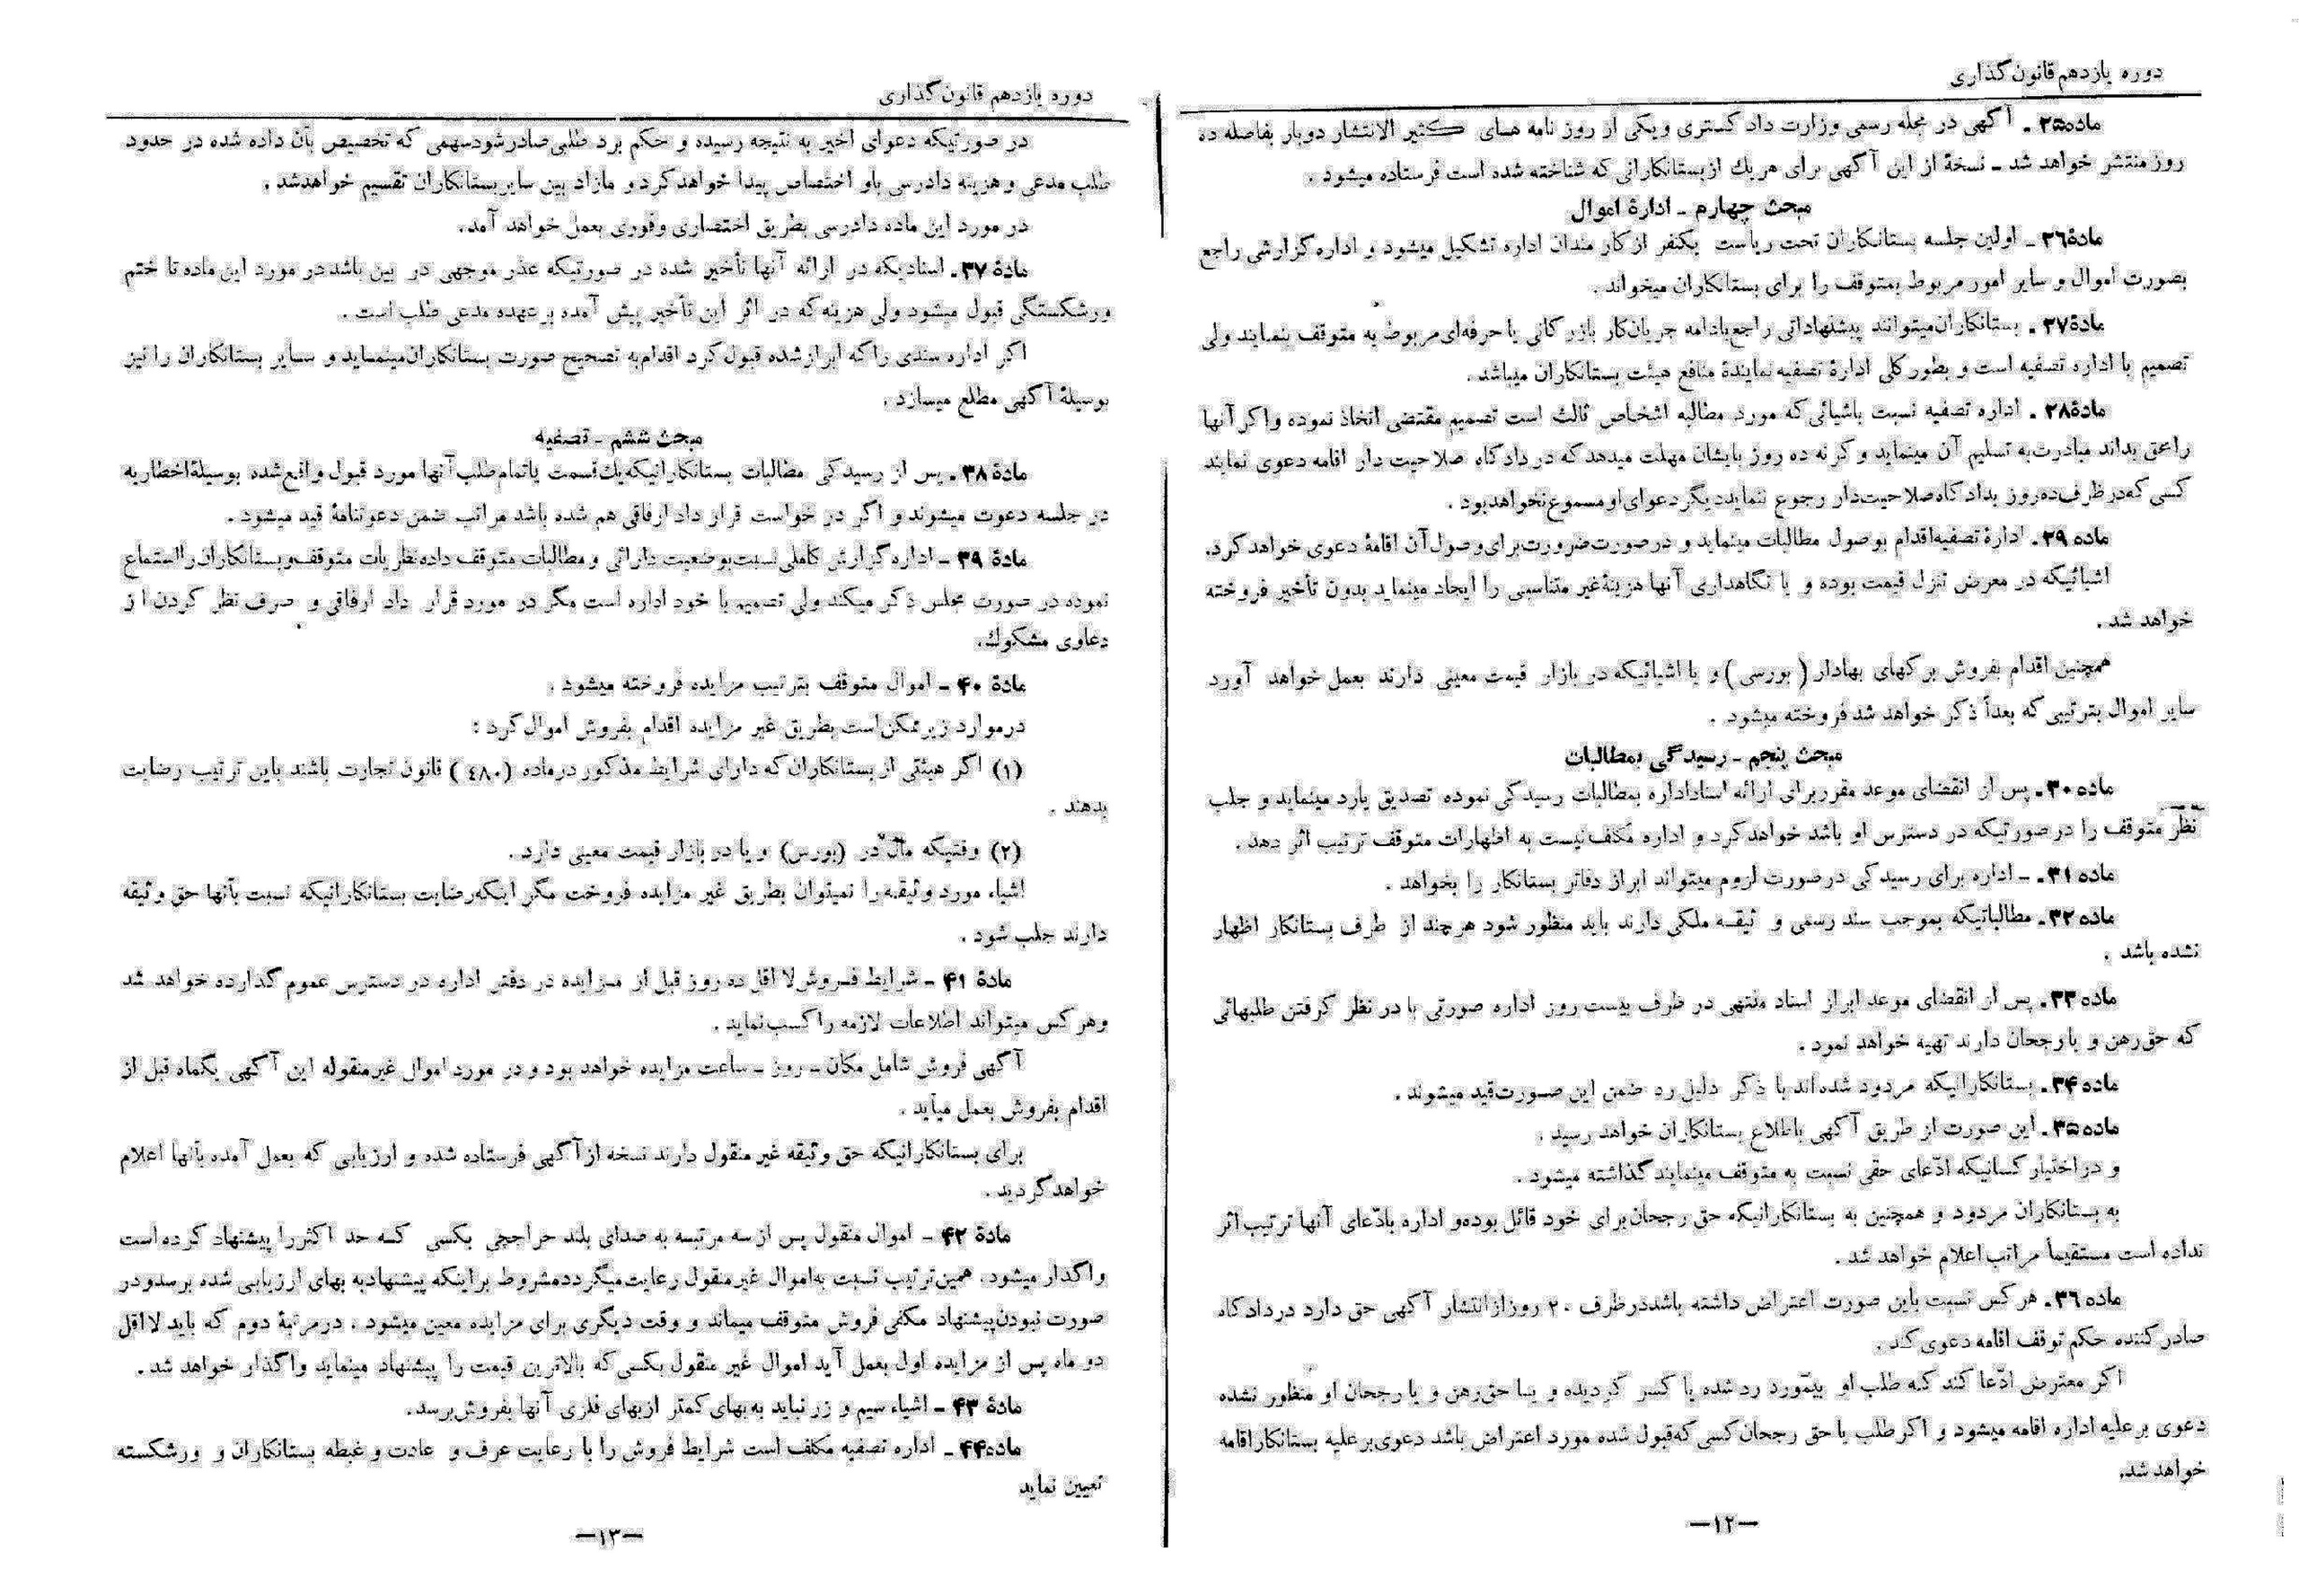 دوره یازدهم قانون‌گذاری
ماده۲۵ ـ آگهی در مجله رسمی وزارت دادگستری و یکی از روز نامه های کثیر الانتشار دوبار بفاصله ده
روز منتشر خواهد شد ـ نسخهٔ از این آگهی برای هر یك از بستانکارانی که شناخته شده است فرستاده میشود .
مبحث چهارم ـ ادارهٔ اموال
مادهٔ۲۶ ـ اولین جلسه بستانکاران تحت ریاست یکنفر از کارمندان اداره تشکیل میشود و اداره گزارشی راجع
بصورت اموال و سایر امور مربوط بمتوقف را برای بستانکاران میخواند .
مادهٔ۲۷ . بستانکاران میتوانند پیشنهاداتی راجع بادامه جریان کار بازرگانی یا حرفه‌ای مربوط به متوقف بنمایند ولی
تصمیم با اداره تصفیه است و بطور کلی ادارهٔ تصفیه نمایندهٔ منافع هیئت بستانکاران میباشد .
مادهٔ۲۸ . اداره تصفیه نسبت باشیائی که مورد مطالبه اشخاص ثالث است تصمیم مقتضی اتخاذ نموده و اگر آنها
را محق بداند مبادرت به تسلیم آن مینماید و گرنه ده روز بایشان مهلت میدهد که در دادگاه صلاحیت دار اقامه دعوی نمایند
کسی که در ظرف ده روز بدادگاه صلاحیت‌دار رجوع ننماید دیگر دعوای او مسموع نخواهد بود .
ماده ۲۹. ادارهٔ تصفیه اقدام بوصول مطالبات مینماید و در صورت ضرورت برای وصول آن اقامهٔ دعوی خواهد کرد.
اشیائیکه در معرض تنزل قیمت بوده و یا نگاهداری آنها هزینهٔ غیر متناسبی را ایجاد مینماید بدون تأخیر فروخته
خواهد شد .
همچنین اقدام بفروش برگهای بهادار ( بورسی ) و یا اشیائیکه در بازار قیمت معینی دارند بعمل خواهد آورد
سایر اموال بترتیبی که بعداً ذکر خواهد شد فروخته میشود .
مبحث پنجم ـ رسیدگی بمطالبات
ماده ۳۰. پس از انقضای موعد مقرر برای ارائه اسناد اداره بمطالبات رسیدگی نموده تصدیق یا رد مینماید و جلب
نظر متوقف را در صورتیکه در دسترس او باشد خواهد کرد و اداره مکلف نیست به اظهارات متوقف ترتیب اثر دهد .
ماده ۳۱. ـ اداره برای رسیدگی در صورت لزوم میتواند ابراز دفاتر بستانکار را بخواهد .
ماده ۳۲. مطالباتیکه بموجب سند رسمی و ثیقه ملکی دارند باید منظور شود هر چند از طرف بستانکار اظهار
نشده باشد .
ماده ۳۳. پس از انقضای موعد ابراز اسناد منتهی در ظرف بیست روز اداره صورتی با در نظر گرفتن طلبهائی
که حق رهن و یا رجحان دارند تهیه خواهد نمود .
ماده ۳۴. بستانکارانیکه مردود شده‌اند با ذکر دلیل رد ضمن این صورت قید میشوند .
ماده ۳۵. این صورت از طریق آگهی باطلاع بستانکاران خواهد رسید .
و در اختیار کسانیکه ادّعای حقی نسبت به متوقف مینمایند گذاشته میشود .
به بستانکاران مردود و همچنین به بستانکارانیکه حق رجحان برای خود قائل بوده و اداره بادّعای آنها ترتیب اثر
نداده است مستقیماً مراتب اعلام خواهد شد .
ماده ۳۶. هر کس نسبت باین صورت اعتراض داشته باشد در ظرف ۲۰ روز از انتشار آگهی حق دارد در دادگاه
صادر کننده حکم توقف اقامه دعوی کند .
اگر معترض ادّعا کند که طلب او بیمورد رد شده یا کسر گردیده و یا حق رهن و یا رجحان او منظور نشده
دعوی بر علیه اداره اقامه میشود و اگر طلب یا حق رجحان کسی که قبول شده مورد اعتراض باشد دعوی بر علیه بستانکار اقامه
خواهد شد.
—۱۲—
دوره یازدهم قانون‌گذاری
در صورتیکه دعوای اخیر به نتیجه رسیده و حکم برد طلبی صادر شود سهمی که تخصیص بآن داده شده در حدود
طلب مدعی و هزینه دادرسی باو اختصاص پیدا خواهد کرد و مازاد بین سایر بستانکاران تقسیم خواهد شد .
در مورد این ماده دادرسی بطریق اختصاری و فوری بعمل خواهد آمد.
مادهٔ ۳۷. اسنادیکه در ارائه آنها تأخیر شده در صورتیکه عذر موجهی در بین باشد در مورد این ماده تا ختم
ورشکستگی قبول میشود ولی هزینه که در اثر این تأخیر پیش آمده بر عهده مدعی طلب است .
اگر اداره سندی را که ابراز شده قبول کرد اقدام به تصحیح صورت بستانکاران مینماید و سایر بستانکاران را نیز
بوسیلهٔ آگهی مطلع میسازد .
مبحث ششم ـ تصفیه
مادهٔ ۳۸. پس از رسیدگی مطالبات بستانکارانیکه یك قسمت یا تمام طلب آنها مورد قبول واقع شده بوسیلهٔ اخطاریه
در جلسه دعوت میشوند و اگر در خواست قرار داد ارفاقی هم شده باشد مراتب ضمن دعوتنامهٔ قید میشود .
مادهٔ ۳۹ ـ اداره گزارش کاملی نسبت بوضعیت دارائی و مطالبات متوقف داده نظریات متوقف و بستانکاران را استماع
نموده در صورت مجلس ذکر میکند ولی تصمیم با خود اداره است مگر در مورد قرار داد ارفاقی و صرف نظر کردن از
دعاوی مشکوك.
مادهٔ ۴۰ ـ اموال متوقف بترتیب مزایده فروخته میشود .
در موارد زیر ممکن است بطریق غیر مزایده اقدام بفروش اموال کرد :
(۱) اگر هیئتی از بستانکاران که دارای شرایط مذکور در ماده (۴۸۰) قانون تجارت باشند باین ترتیب رضایت
بدهند .
(۲) وقتیکه مال در (بورس) و یا در بازار قیمت معینی دارد .
اشیاء مورد وثیقه را نمیتوان بطریق غیر مزایده فروخت مگر اینکه رضایت بستانکارانیکه نسبت بآنها حق وثیقه
دارند جلب شود .
مادهٔ ۴۱ ـ شرایط فروش لا اقل ده روز قبل از مزایده در دفتر اداره در دسترس عموم گذارده خواهد شد
وهر کس میتواند اطلاعات لازمه را کسب نماید .
آگهی فروش شامل مکان ـ روز ـ ساعت مزایده خواهد بود و در مورد اموال غیر منقوله این آگهی یکماه قبل از
اقدام بفروش بعمل میآید .
برای بستانکارانیکه حق وثیقه غیر منقول دارند نسخه از آگهی فرستاده شده و ارزیابی که بعمل آمده بآنها اعلام
خواهد گردید .
مادهٔ ۴۲ ـ اموال منقول پس از سه مرتبه به صدای بلند حراجچی بکسی که حد اکثر را پیشنهاد کرده است
واگذار میشود . همین ترتیب نسبت به اموال غیر منقول رعایت میگردد مشروط بر اینکه پیشنهاد به بهای ارزیابی شده برسد و در
صورت نبودن پیشنهاد مکفی فروش متوقف میماند و وقت دیگری برای مزایده معین میشود . در مرتبهٔ دوم که باید لااقل
دو ماه پس از مزایده اول بعمل آید اموال غیر منقول بکسی که بالاترین قیمت را پیشنهاد مینماید واگذار خواهد شد .
مادهٔ ۴۳ ـ اشیاء سیم و زر نباید به بهای کمتر از بهای فلزی آنها بفروش برسد.
ماده۴۴ ـ اداره تصفیه مکلف است شرایط فروش را با رعایت عرف و عادت و غبطه بستانکاران و ورشکسته
تعیین نماید
—۱۳—